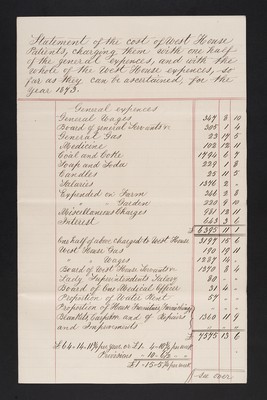 Statement of the cost of West House
Patients, charging them with one half
of the general expences, and with the
whole of the West House expences, so
far as they can be ascertained, for the
year 1873.
General expences
General Wages 349 8 10
Board of general Servants 305 1 4
General Gas 23 19 5
Medicine 102 12 11
Coal and Coke 1794 6 7
Soap and Soda 222 1 8
Candles 25 11 5
Salaries 1396 2 -
Expended on Farm 366 3 8
" " Garden 220 9 10
Miscellaneous Charges 981 13 11
Interest 643 3 6
£ 6395 11 1
One half of above charged to West House 3197 15 6
West House Gas 190 19 11
" " Wages 1287 14 -
Board of West House Servants 1370 8 4
Lady Superintendents Salary 80 - -
Board of One Medical Officer 31 4 -
Proportion of Water Rent 57 - -
Proportion of House Furniture, Furnishing
Blankets, Carpets and of Repairs 1360 11 9
and Improvements
£ 7575 13 6
Provisions
see over